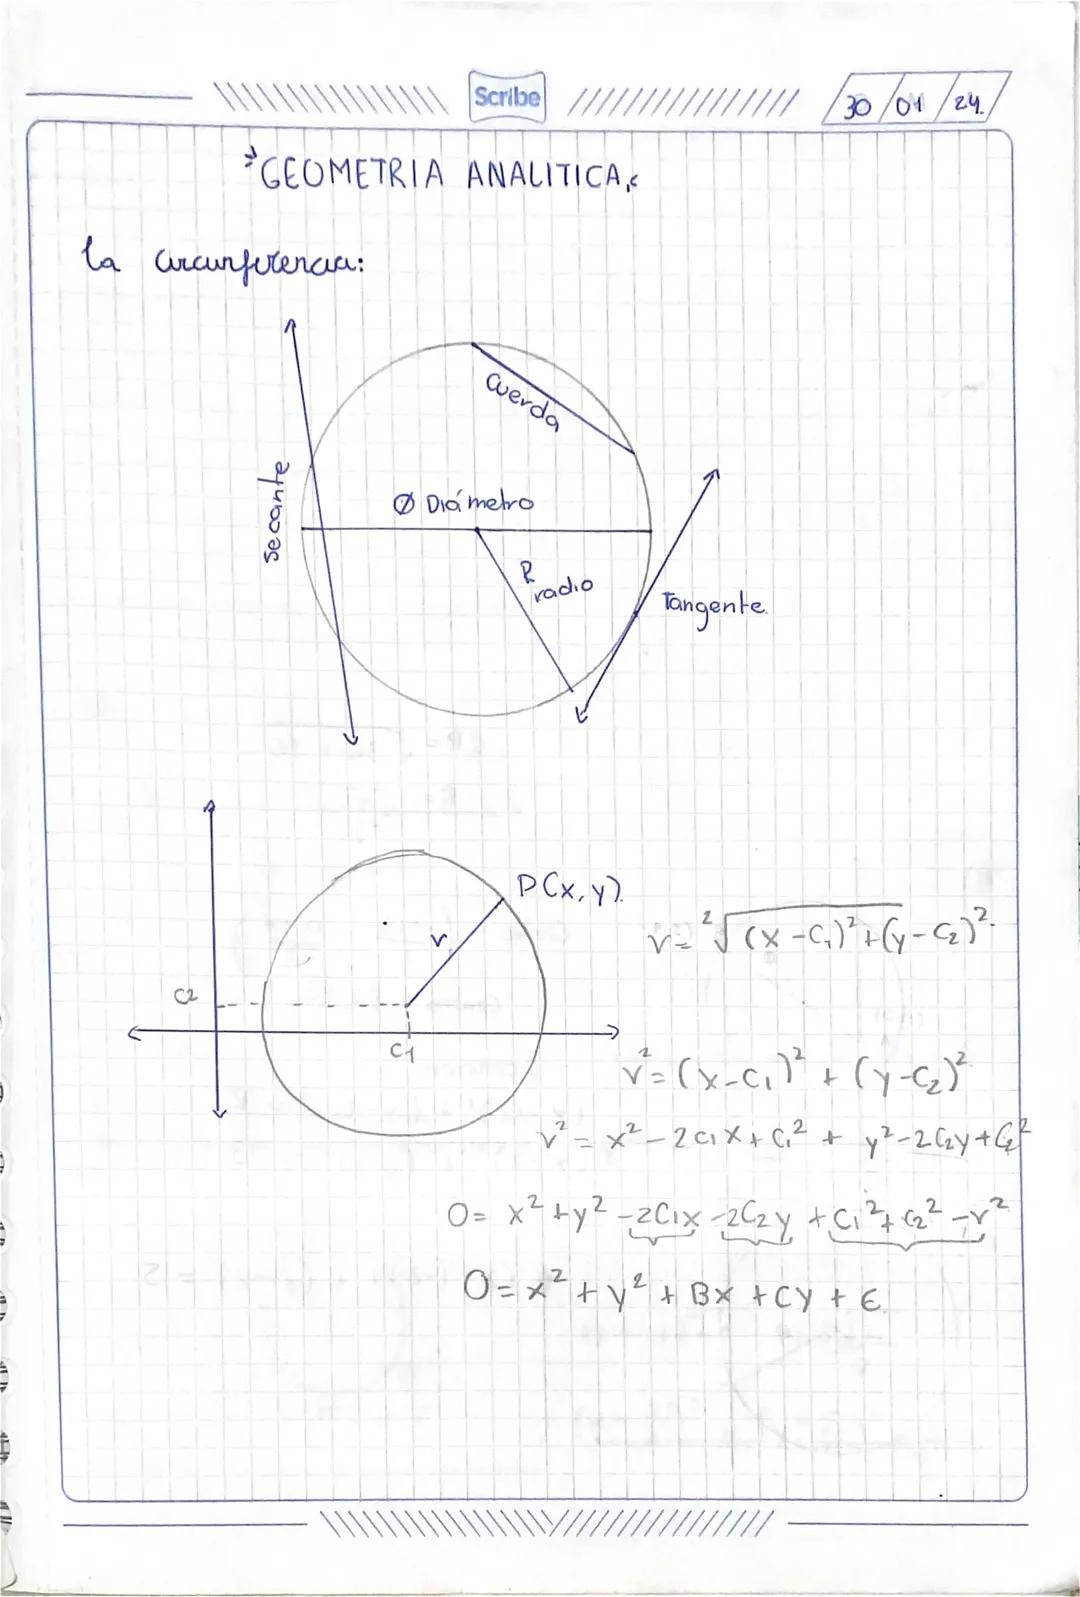 Scribe
30/01/24.
GEOMETRIA ANALITICA
La circunferencia:
Cuerda
secante
Ø Diámetro
R
radio
Tangente.
P(x,y).
r
C2
C1
r = ²√(x-C₁)²+(y-C₂)².
r² = (x-C₁)² + (y-C₂)²
r² = x² - 2C₁x + C₁² + y² - 2C₂y + C₂²
0 = x² + y² - 2C₁x - 2C₂y + C₁² + C₂² - r²
0 = x² + y² + Bx + Cy + E